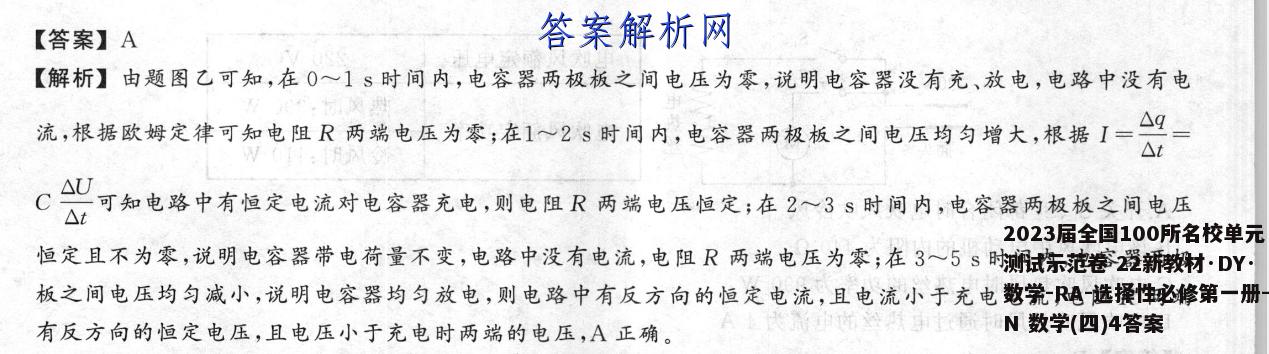 答案解析网
【答案】A
【解析】由题图乙可知,在0～1 s时间内,电容器两极板之间电压为零,说明电容器没有充、放电,电路中没有电
流,根据欧姆定律可知电阻R 两端电压为零;在1～2 s时间内,电容器两极板之间电压均匀增大,根据 I=Δq/Δt=
C ΔU/Δt 可知电路中有恒定电流对电容器充电,则电阻R 两端电压恒定;在2～3 s时间内,电容器两极板之间电压
恒定且不为零,说明电容器带电荷量不变,电路中没有电流,电阻R 两端电压为零;在3～5 s时
板之间电压均匀减小,说明电容器均匀放电,则电路中有反方向的恒定电流,且电流小于充电
有反方向的恒定电压,且电压小于充电时两端的电压,A 正确。
2023届全国100所名校单元
测试示范卷·22新教材·DY·
数学-RA-选择性必修第一册-
N 数学(四)4答案